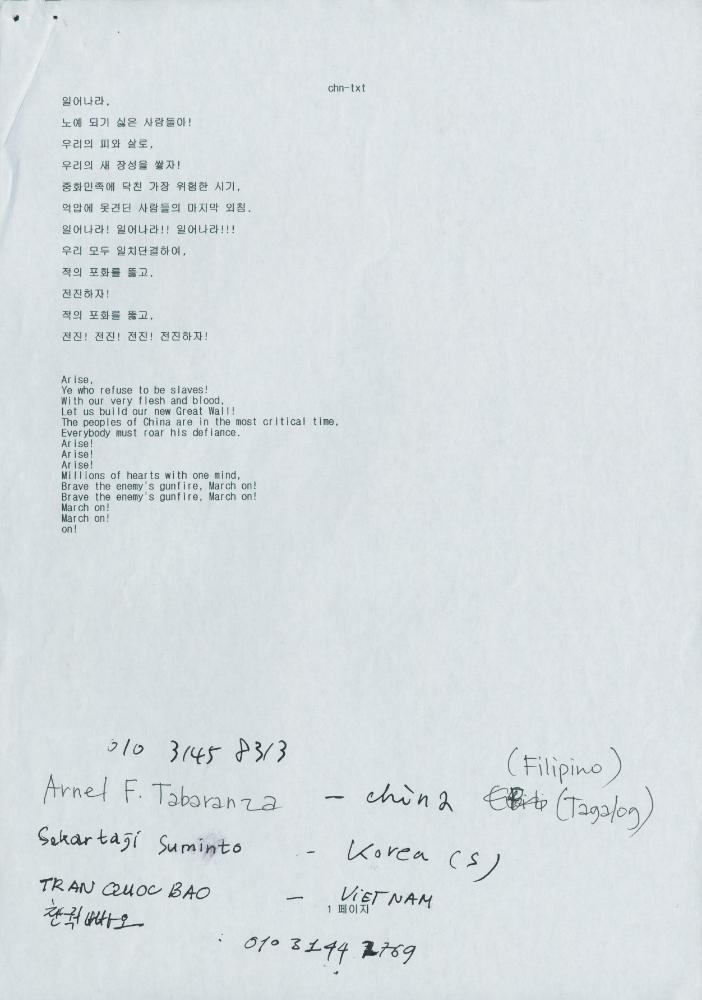 chn-txt
일어나라,
노예 되기 싫은 사람들아!
우리의 피와 살로,
우리의 새 장성을 쌓자!
중화민족에 닥친 가장 위험한 시기,
억압에 못견딘 사람들의 마지막 외침.
일어나라! 일어나라!! 일어나라!!!
우리 모두 일치단결하여,
적의 포화를 뚫고,
전진하자!
적의 포화를 뚫고,
전진! 전진! 전진! 전진하자!
Arise,
Ye who refuse to be slaves!
With our very flesh and blood,
Let us build our new Great Wall!
The peoples of China are in the most critical time,
Everybody must roar his defiance.
Arise!
Arise!
Arise!
Millions of hearts with one mind,
Brave the enemy's gunfire, March on!
Brave the enemy's gunfire, March on!
March on!
March on!
on!
010 3145 8313
(Filipino)
Arnel F. Tabaranza - china (Tagalog)
Sekartagi Suminto - Korea (S)
TRAN QUOC BAO - VIET NAM
1 페이지
010 3144 2769